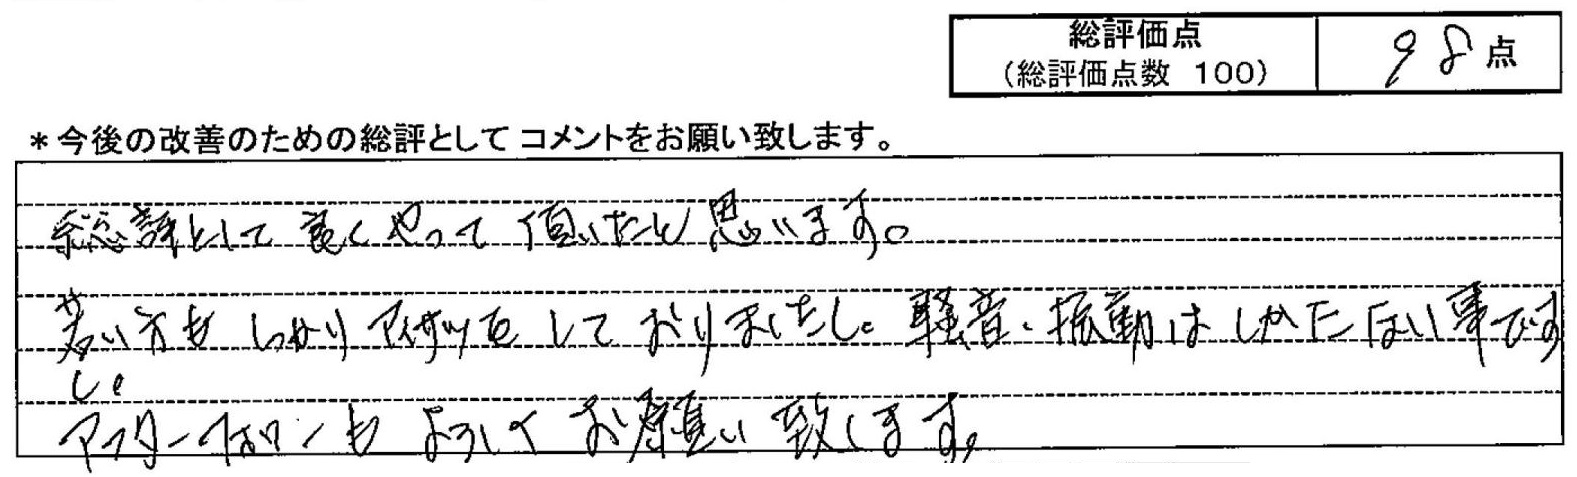 総評価点
(総評価点数 100)
98点
*今後の改善のための総評として コメントをお願い致します。
総評として良くやって頂いたと思います。
若い方もしっかりアイサツをしておりましたし。騒音、振動はしかたない事です
し。
アフターフォローもよろしくお願い致します。